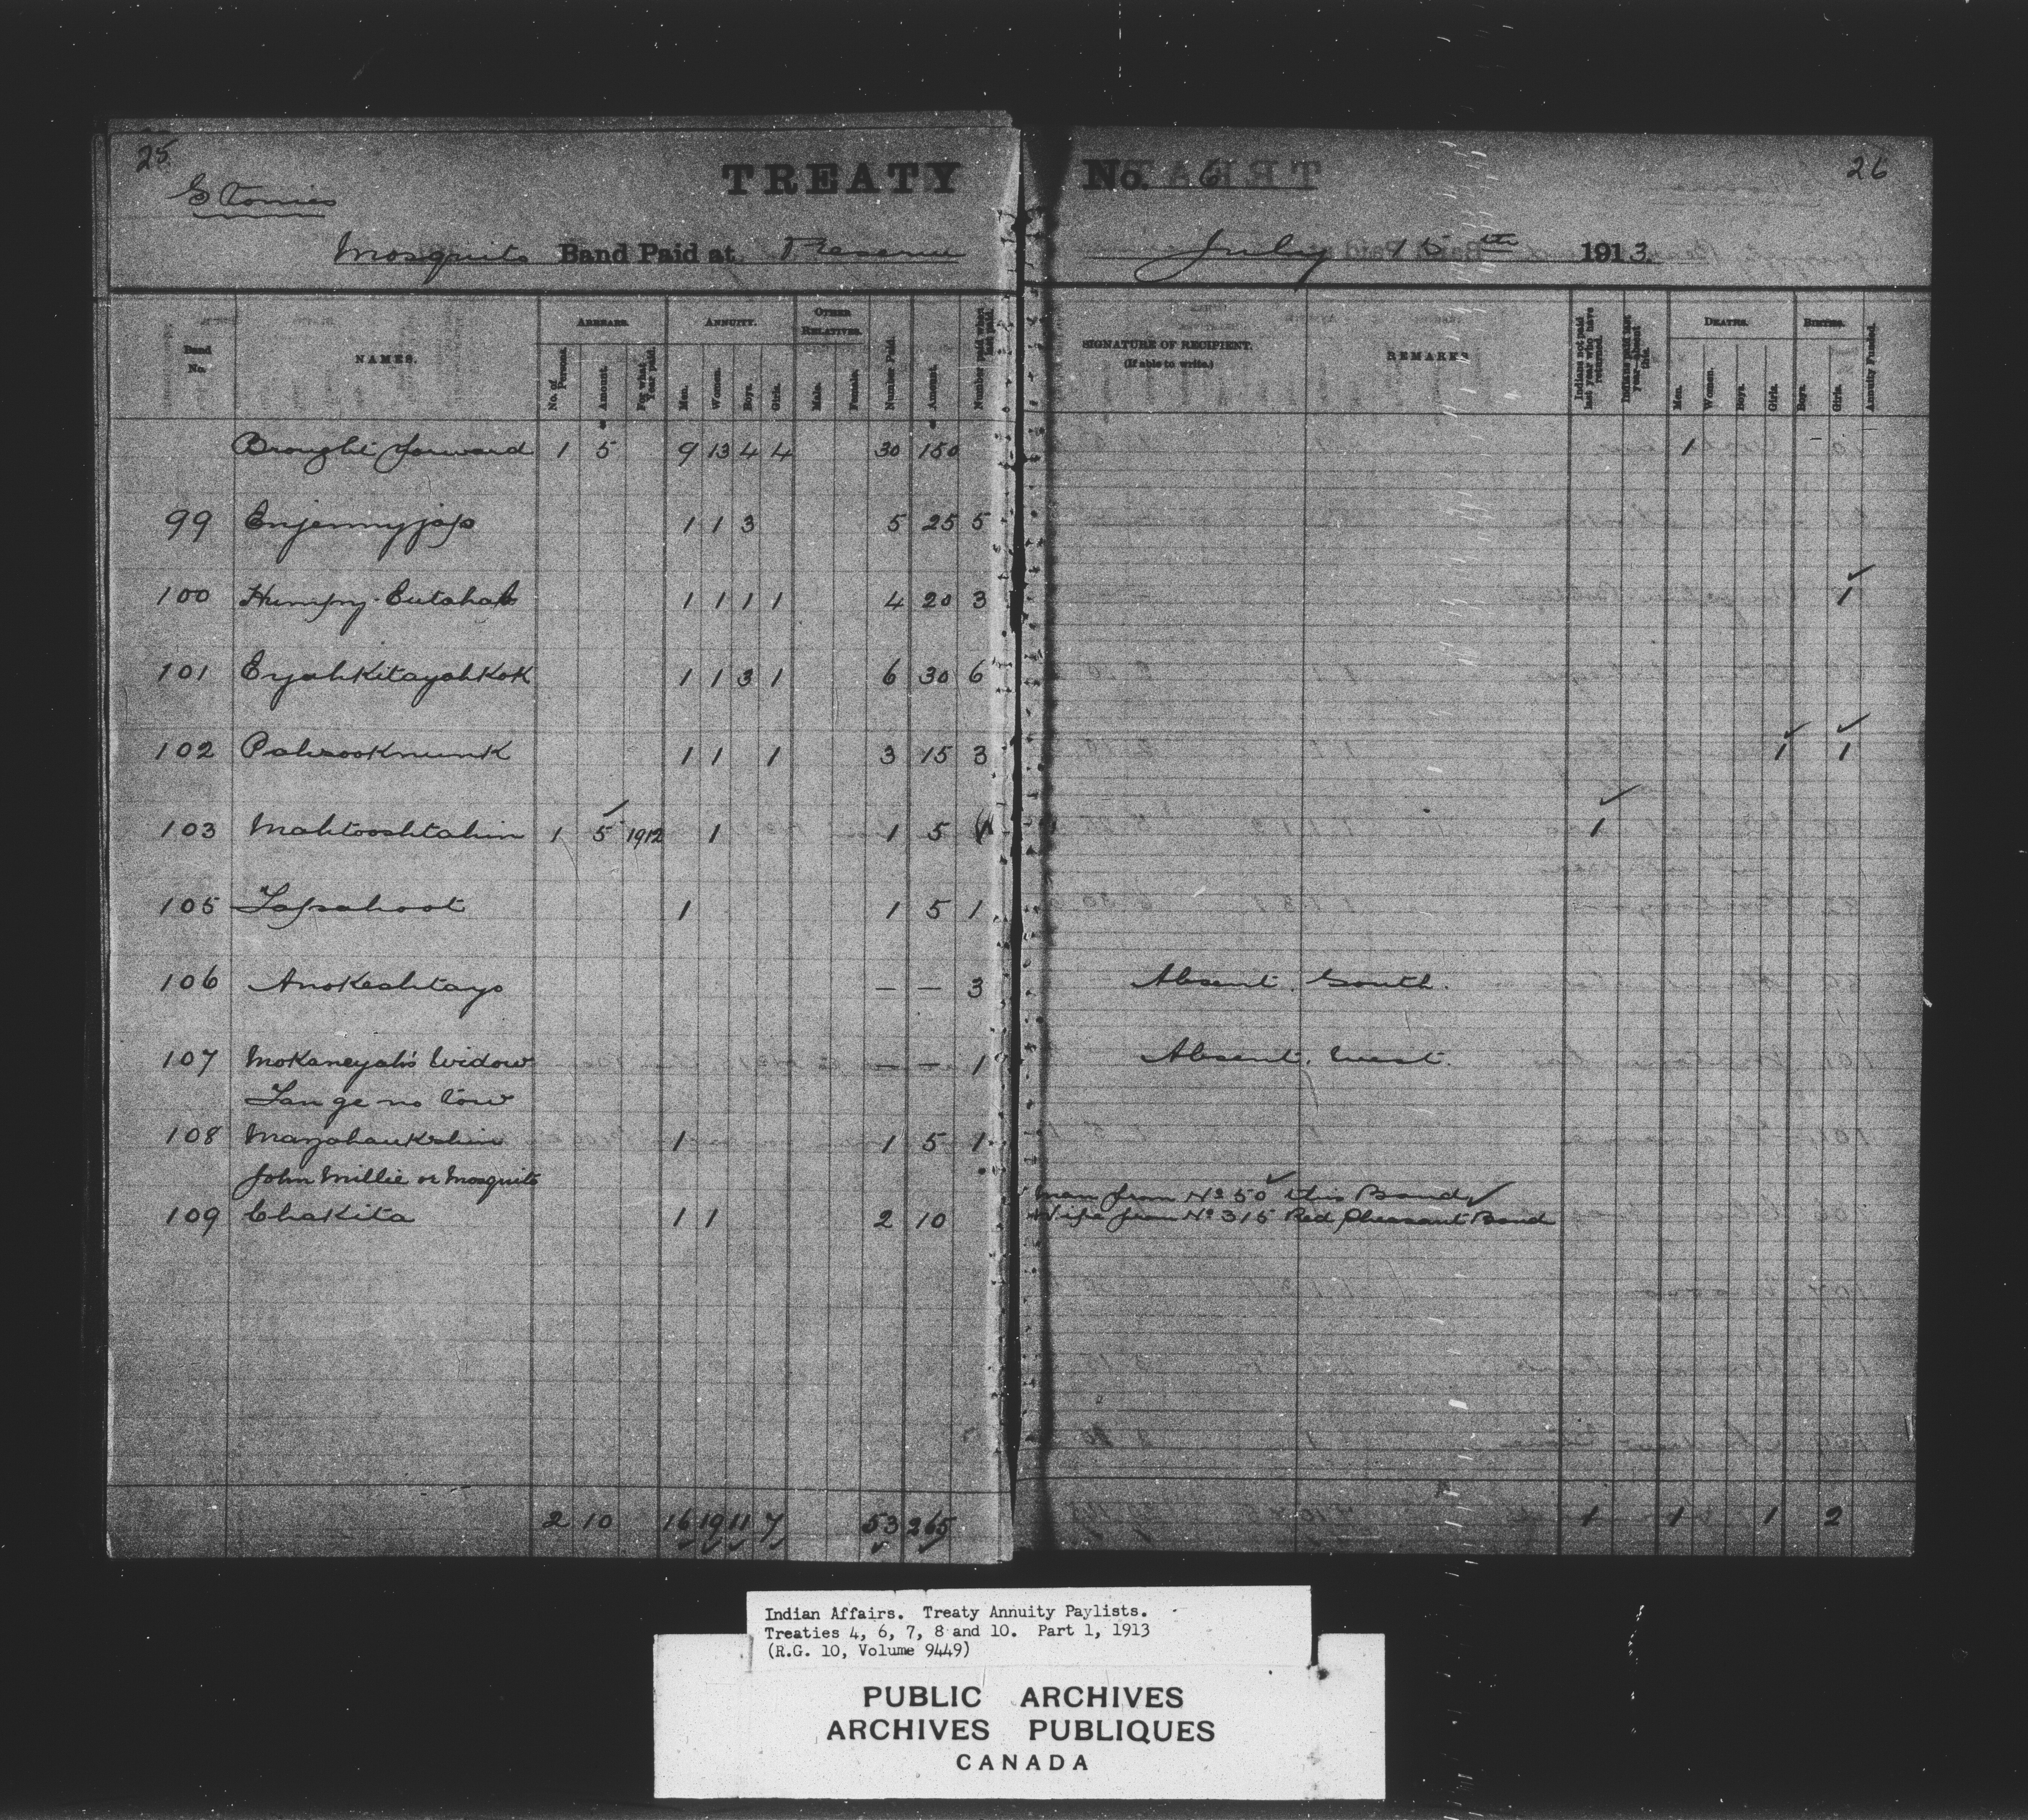 25
Stonies
TREATY No. 6
26
Mosquito Band Paid at Reserve July 15th 1913.
Band No.
NAMES.
ARREARS.
No. of Persons.
Amount.
For what Year paid.
ANNUITY.
Men.
Women.
Boys.
Girls.
OTHER RELATIVES.
Male.
Female.
Number Paid.
Amount.
Number paid when last paid.
SIGNATURE OF RECIPIENT.
(If able to write.)
REMARKS
Indians not paid last year who have returned.
Indians paid last year—absent this.
DEATHS.
Men.
Women.
Boys.
Girls.
BIRTHS.
Boys.
Girls.
Annuity Funded.
Brought forward 1 5 9 13 4 4 30 150 1
99 Enjemmyjap 1 1 3 5 25 5
100 Humpy 1 1 1 1 4 20 3 1
101 EyahKitayahKok 1 1 3 1 6 30 6
102 Pahsooknunk 1 1 1 3 15 3 1 1
103 Mahtooshtahin 1 5 1912 1 1 5 1
105 Tapahoot 1 1 5 1
106 Anokeshtayo — — 3 Absent South.
107 Mokaneyah's Widow — — 1 Absent. West.
Tan ge no tow
108 Mazahaukshin 1 1 5 1
John Millie or Mosquito
Man from No 50 this Band
109 Chakita 1 1 2 10 Wife from No 315 Red Pheasant Band
2 10 16 19 11 7 53 265 1 1 1 2
Indian Affairs. Treaty Annuity Paylists.
Treaties 4, 6, 7, 8 and 10. Part 1, 1913
(R.G. 10, Volume 9449)
PUBLIC ARCHIVES
ARCHIVES PUBLIQUES
CANADA